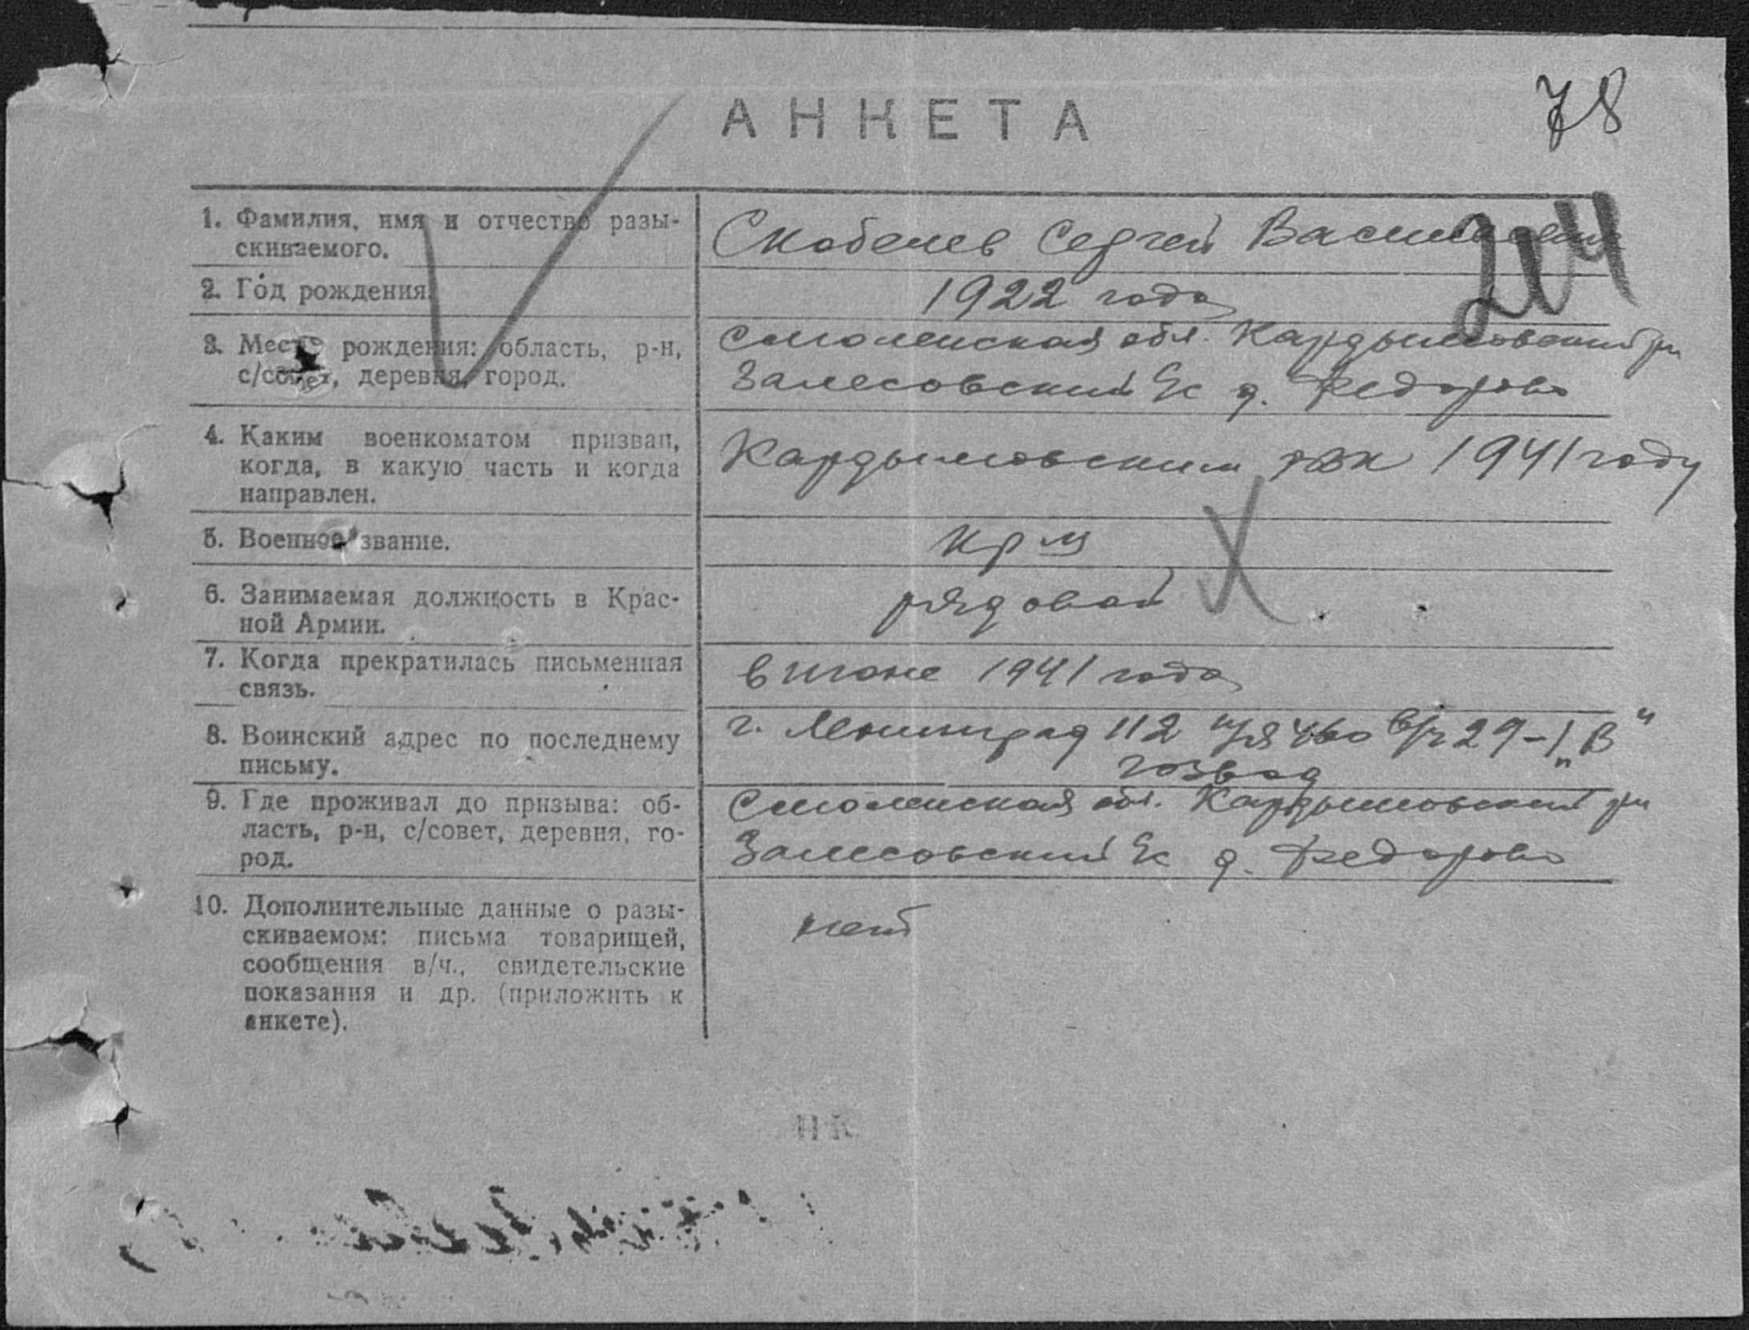 78
АНКЕТА
204
1. Фамилия, имя и отчество разы-
скиваемого.
Скобелев Сергей Васильевич
2. Год рождения.
1922 года
3. Место рождения: область, р-н,
с/совет, деревня, город.
Смоленская обл. Кардымовский рн
Залесовский с/с д. Федорово
4. Каким военкоматом призван,
когда, в какую часть и когда
направлен.
Кардымовским рвк 1941 году
5. Военное звание.
кр-ц
6. Занимаемая должность в Крас-
ной Армии.
рядовой
7. Когда прекратилась письменная
связь.
в июне 1941 года
8. Воинский адрес по последнему
письму.
г. Ленинград 112 п/я в/ч 29-1 „В"
взвод
9. Где проживал до призыва: об-
ласть, р-н, с/совет, деревня, го-
род.
Смоленская обл. Кардымовский рн
Залесовский с/с д. Федорово
10. Дополнительные данные о разы-
скиваемом: письма товарищей,
сообщения в/ч., свидетельские
показания и др. (приложить к
анкете).
нет